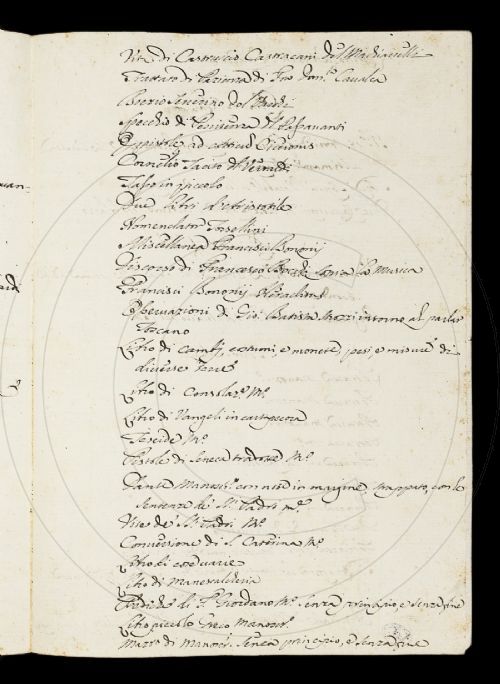 Vita di Castruccio Castracani del Machiavelli
Trattato di Pazienza di Fra Dom.co Cavalca
Boezio Severino del
Specchio di Penitenza del Passavanti
Epistole ad Ciceronis
Cornelio Tacito del
Tasso in piccolo
Due libri d'Aristotile
Nomenclator Torsellini
Miscellanea Francisci Bononij
Discorso di Francesco Bocchi sopra la Musica
Francisci Bononij
Osservazioni di Gio: Batista Strozzi intorno al parlar
Toscano
Libro di cambj, costumi, e monete, pesi e misure di
diverse Terre
Libro di Consolaz.e M.o
Libro di Vangeli in cartapecora
Teseide M.o
Pistole di Seneca tradotte M.o
Dante Manosc.o con note in margine, strappato, con le
sentenze de S.ti Padri M.o
Vite de S.ti Padri M.o
Conversione di S. Caterina M.o
Libro di
Libro di Manescalcheria
Prediche di F. Giordano M.o senza principio, e senza fine
Libro piccolo Greco Manosc.o
di Manosc. senza principio, e senza fine